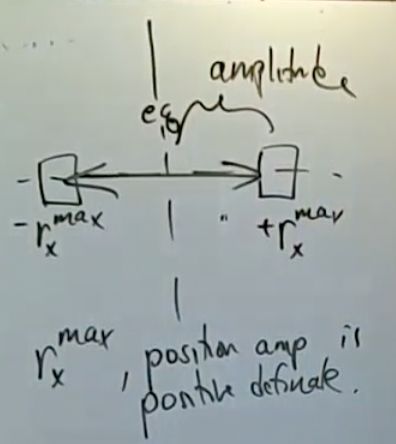 amplitude
eq
-r_x^max
+r_x^max
r_x^max, position amp is
positive definate.